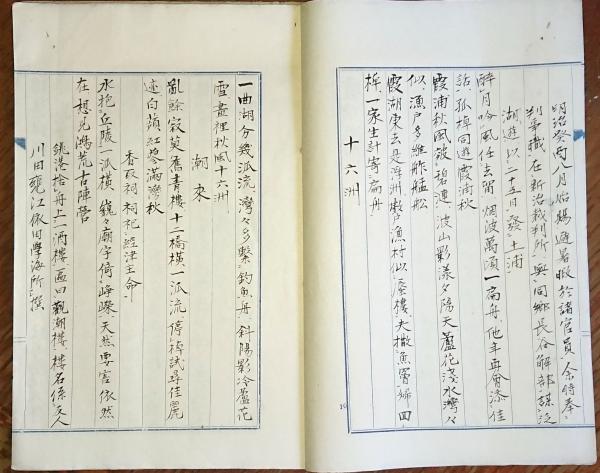 明治癸酉八月始賜避暑暇於諸官員余時奉
判事職在新治裁判所與同郷長谷解部謀泛
湖遊以二十五日發土浦
醉月吟風任去留烟波萬頃一扁舟他年再會添佳
話孤棹同遊霞浦秋
霞浦秋風波碧漣波山影漾夕陽天蘆花淺水灣々
似漁戸多維舴艋船
霞湖東去是浮洲數戸漁村似蜃樓夫撒魚罾婦回
棹一家生計寄扁舟
十六洲
一曲湖分幾派流灣々多繋釣魚舟斜陽影冷蘆花
雪畫裡秋風十六洲
潮來
亂餘寂莫舊青樓十二橋横一派流停棹試尋佳麗
迹白蘋紅蓼滿灣秋
香取祠 祠祀經津主命
水抱丘陵一派横巍々廟宇倚崢嶸天然要害依然
在想見鴻荒古陣營
銚港捨舟上一酒樓匾曰觀潮樓樓名係友人
川田甕江依田學海所撰